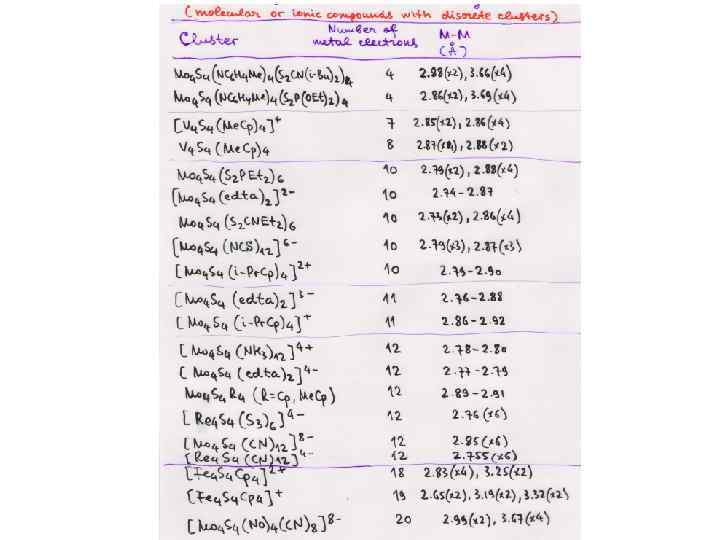 (molecular or ionic compounds with discrete clusters)
Cluster Number of metal electrons M-M (Å)
Mo4S4(NC6H4Me)4(S2CN(i-Bu)2)4 4 2.88(x2), 3.66(x4)
Mo4S4(NC6H4Me)4(S2P(OEt)2)4 4 2.86(x2), 3.69(x4)
[V4S4(MeCp)4]+ 7 2.85(x2), 2.86(x4)
V4S4(MeCp)4 8 2.87(x4), 2.88(x2)
Mo4S4(S2PEt2)6 10 2.79(x2), 2.88(x4)
[Mo4S4(edta)2]2- 10 2.74-2.87
Mo4S4(S2CNEt2)6 10 2.73(x2), 2.86(x4)
[Mo4S4(NCS)12]6- 10 2.79(x3), 2.87(x3)
[Mo4S4(i-PrCp)4]2+ 10 2.79-2.90
[Mo4S4(edta)2]3- 11 2.76-2.88
[Mo4S4(i-PrCp)4]+ 11 2.86-2.92
[Mo4S4(NH3)12]4+ 12 2.78-2.80
[Mo4S4(edta)2]4- 12 2.77-2.79
Mo4S4R4 (R=Cp, MeCp) 12 2.89-2.91
[Re4S4(S3)6]4- 12 2.76(x6)
[Mo4S4(CN)12]8- 12 2.85(x6)
[Re4S4(CN)12]4- 12 2.755(x6)
[Fe4S4Cp4]2+ 18 2.83(x4), 3.25(x2)
[Fe4S4Cp4]+ 19 2.65(x2), 3.19(x2), 3.32(x2)
[Mo4S4(NO)4(CN)8]8- 20 2.99(x2), 3.67(x4)